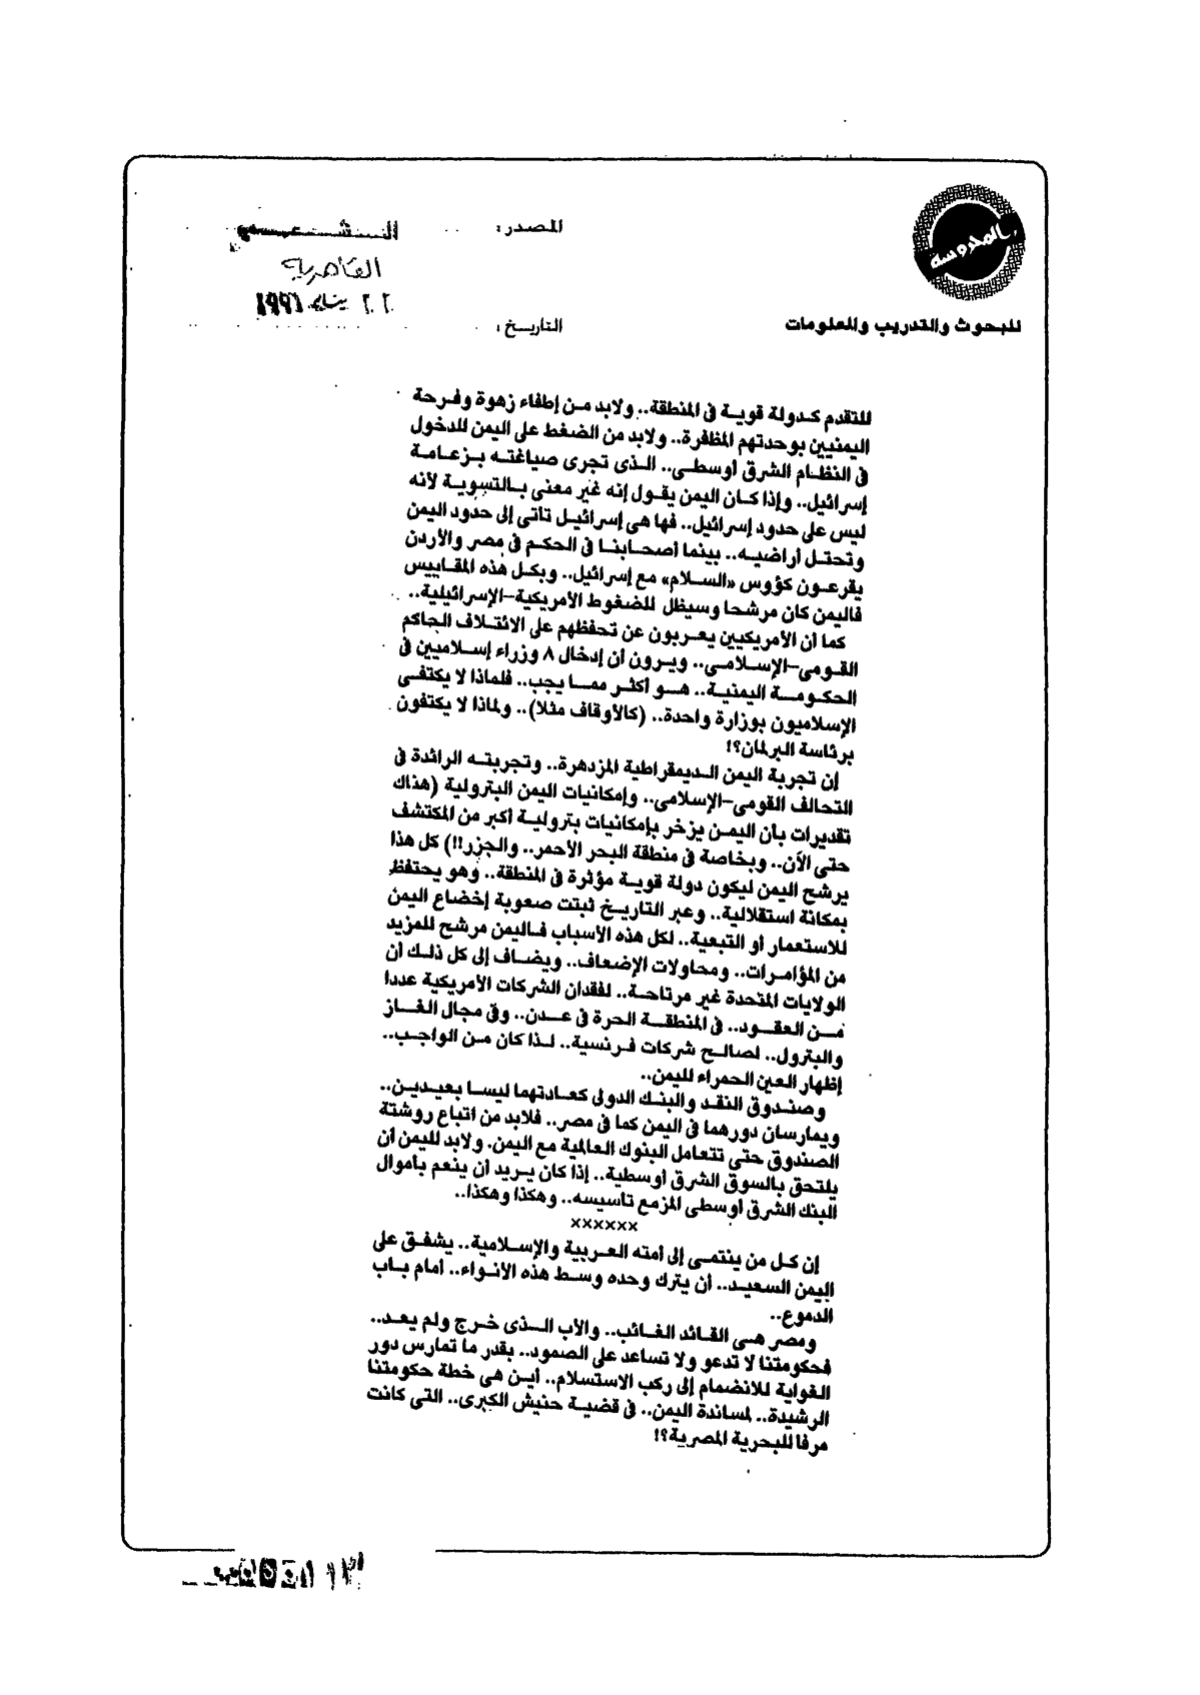 المحروسة
للبحوث والتدريب والمعلومات
المصدر:
الشعب
القاهرية
التاريخ:
٢٢ يناير ١٩٩٦
للتقدم كدولة قوية فى المنطقة.. ولابد من إطفاء زهوة وفرحة
اليمنيين بوحدتهم المظفرة.. ولابد من الضغط على اليمن للدخول
فى النظام الشرق أوسطى.. الذى تجرى صياغته بزعامة
إسرائيل.. وإذا كان اليمن يقول إنه غير معنى بالتسوية لأنه
ليس على حدود إسرائيل.. فها هى إسرائيل تأتى إلى حدود اليمن
وتحتل أراضيه.. بينما أصحابنا فى الحكم فى مصر والأردن
يقرعون كؤوس «السلام» مع إسرائيل.. وبكل هذه المقاييس
فاليمن كان مرشحا وسيظل للضغوط الأمريكية-الإسرائيلية..
كما أن الأمريكيين يعربون عن تحفظهم على الائتلاف الحاكم
القومى-الإسلامى.. ويرون أن إدخال ٨ وزراء إسلاميين فى
الحكومة اليمنية.. هو أكثر مما يجب.. فلماذا لا يكتفى
الإسلاميون بوزارة واحدة.. (كالأوقاف مثلا).. ولماذا لا يكتفون
برئاسة البرلمان؟!
إن تجربة اليمن الديمقراطية المزدهرة.. وتجربته الرائدة فى
التحالف القومى-الإسلامى.. وإمكانيات اليمن البترولية (هناك
تقديرات بأن اليمن يزخر بإمكانيات بترولية أكبر من المكتشف
حتى الآن.. وبخاصة فى منطقة البحر الأحمر.. والجزر!!) كل هذا
يرشح اليمن ليكون دولة قوية مؤثرة فى المنطقة.. وهو يحتفظ
بمكانة استقلالية.. وعبر التاريخ ثبتت صعوبة إخضاع اليمن
للاستعمار أو التبعية.. لكل هذه الأسباب فاليمن مرشح للمزيد
من المؤامرات.. ومحاولات الإضعاف.. ويضاف إلى كل ذلك أن
الولايات المتحدة غير مرتاحة.. لفقدان الشركات الأمريكية عددا
من العقود.. فى المنطقة الحرة فى عدن.. وفى مجال الغاز
والبترول.. لصالح شركات فرنسية.. لذا كان من الواجب..
إظهار العين الحمراء لليمن..
وصندوق النقد والبنك الدولى كعادتهما ليسا بعيدين..
ويمارسان دورهما فى اليمن كما فى مصر.. فلابد من اتباع روشتة
الصندوق حتى تتعامل البنوك العالمية مع اليمن. ولابد لليمن أن
يلتحق بالسوق الشرق أوسطية.. إذا كان يريد أن ينعم بأموال
البنك الشرق أوسطى المزمع تأسيسه.. وهكذا وهكذا..
××××××
إن كل من ينتمى إلى أمته العربية والإسلامية.. يشفق على
اليمن السعيد.. أن يترك وحده وسط هذه الأنواء.. أمام باب
الدموع..
ومصر هى القائد الغائب.. والأب الذى خرج ولم يعد..
فحكومتنا لا تدعو ولا تساعد على الصمود.. بقدر ما تمارس دور
الغواية للانضمام إلى ركب الاستسلام.. أين هى خطة حكومتنا
الرشيدة.. لمساندة اليمن.. فى قضية حنيش الكبرى.. التى كانت
مرفأ للبحرية المصرية؟!